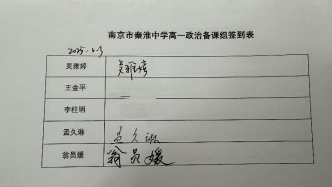 南京市秦淮中学高一政治备课组签到表
吴雅婷 吴雅婷
王金平
李桂明
孟久琳 孟久琳
翁员媛 翁员媛